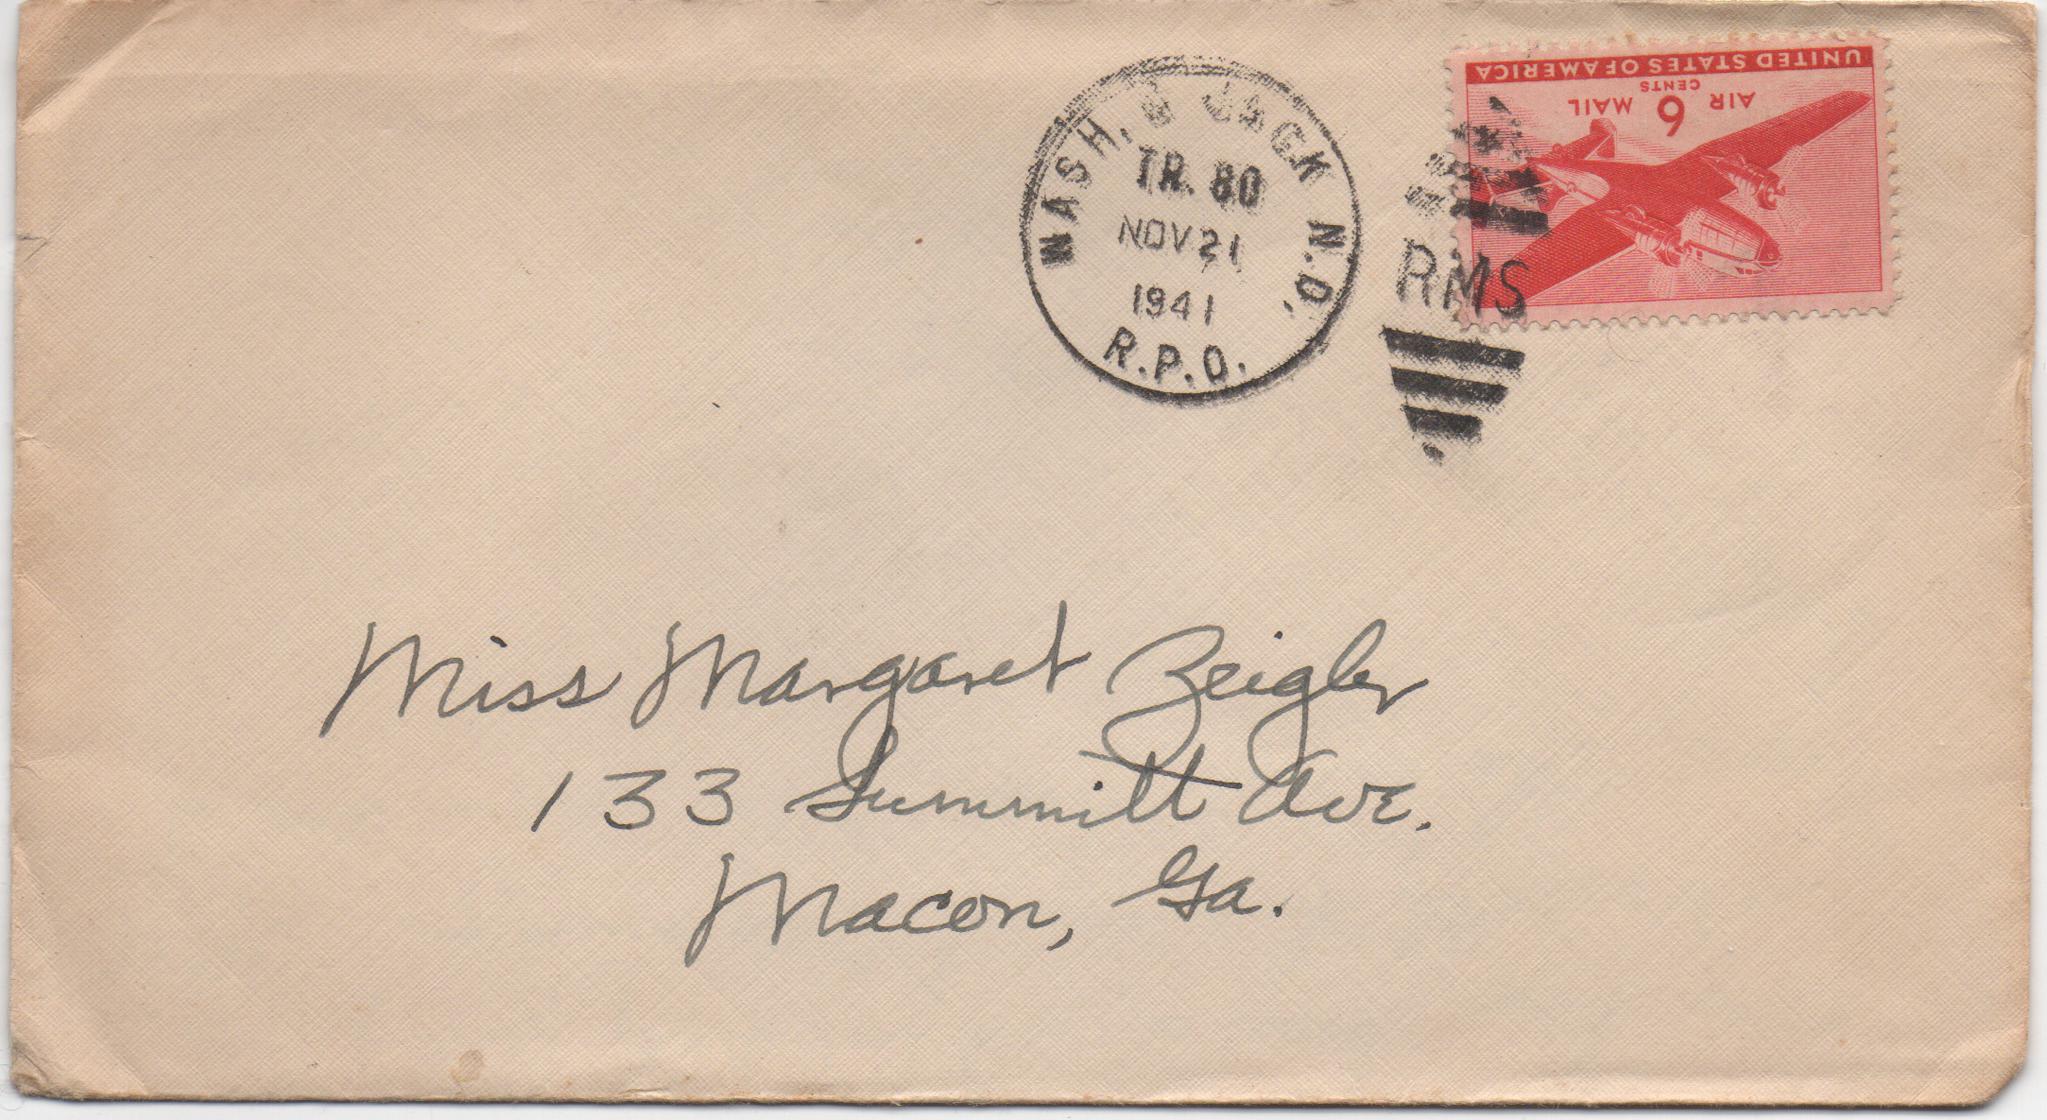 NASH. & JACK N.D.
TR. 80
NOV 21
1941
R.P.O.
RMS
UNITED STATES OF AMERICA
CENTS
AIR 6 MAIL
Miss Margaret Zeigler
133 Summitt Ave.
Macon, Ga.